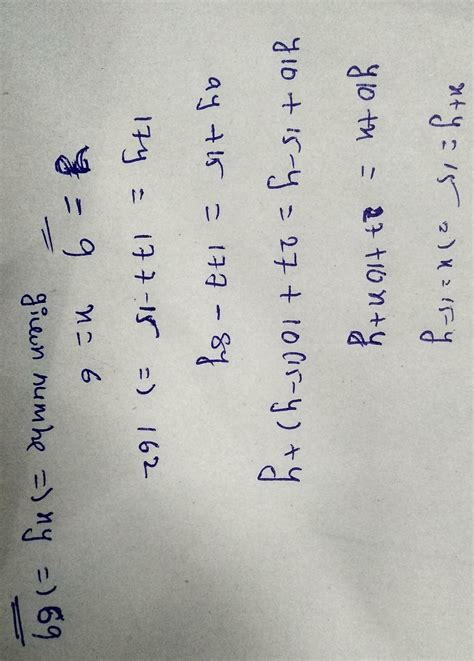 x+y = 15 => x = 15-y
y10 + x = 27+10x+y
y10 + 15-y = 27 + 10(15-y) +y
9y + 15 = 177 - 8y
17y = 177-15 => 162
y = 9 x = 6
given numbe => xy => 69